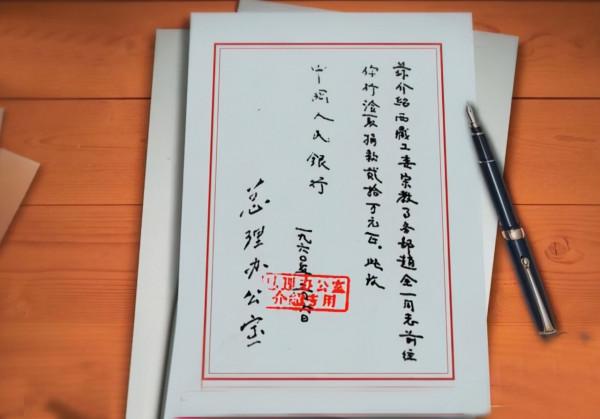 兹介绍西藏工委宗教部赵全一同志前往
你行洽取捐款贰拾万元正。此致
中国人民银行
一九六〇年日
总理办公室
总理办公室
介绍专用